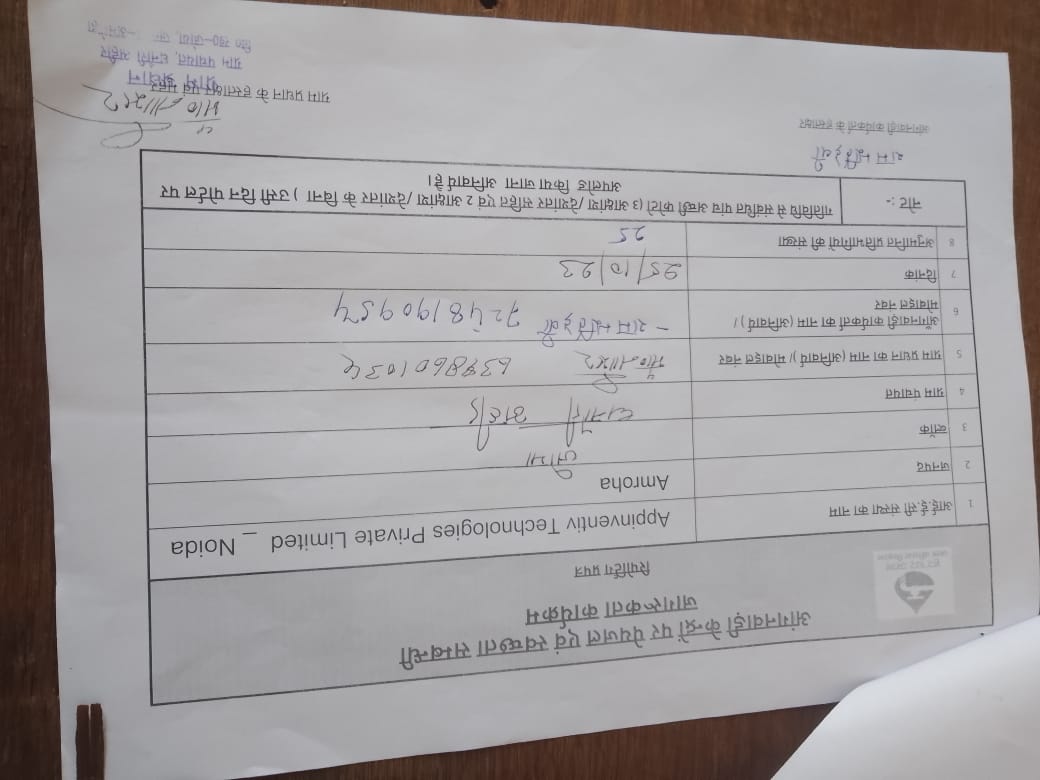 आंगनवाड़ी केन्द्रों पर पेयजल एवं स्वच्छता सम्बन्धी
जागरूकता कार्यक्रम
रिपोर्टिंग प्रपत्र
हर घर जल
जल जीवन मिशन
1 आई.ई.सी संस्था का नाम Appinventiv Technologies Private Limited _ Noida
2 जनपद Amroha
3 ब्लॉक जोया
4 ग्राम पंचायत धनौरी अहीर
5 ग्राम प्रधान का नाम (अनिवार्य)/ मोबाइल नंबर 639860103
6 आँगनवाड़ी कार्यकर्ता का नाम (अनिवार्य) / मोबाइल नंबर - राममूर्ति देवी 7248190954
7 दिनांक 25/10/23
8 अनुमानित प्रतिभागियों की संख्या 25
नोट :- गतिविधि से संबंधित पांच अच्छी फोटो (3 आक्षांश /देशांतर सहित एवं 2 आक्षांश /देशांतर के बिना ) उसी दिन पोर्टल पर
अपलोड किया जाना अनिवार्य है।
राममूर्ति देवी
आँगनवाड़ी कार्यकर्ता के हस्ताक्षर
ग्राम प्रधान के हस्ताक्षर एवं मुहर
ग्राम प्रधान
ग्राम पंचायत, धनौरी अहीर
वि० ख०-जोया,